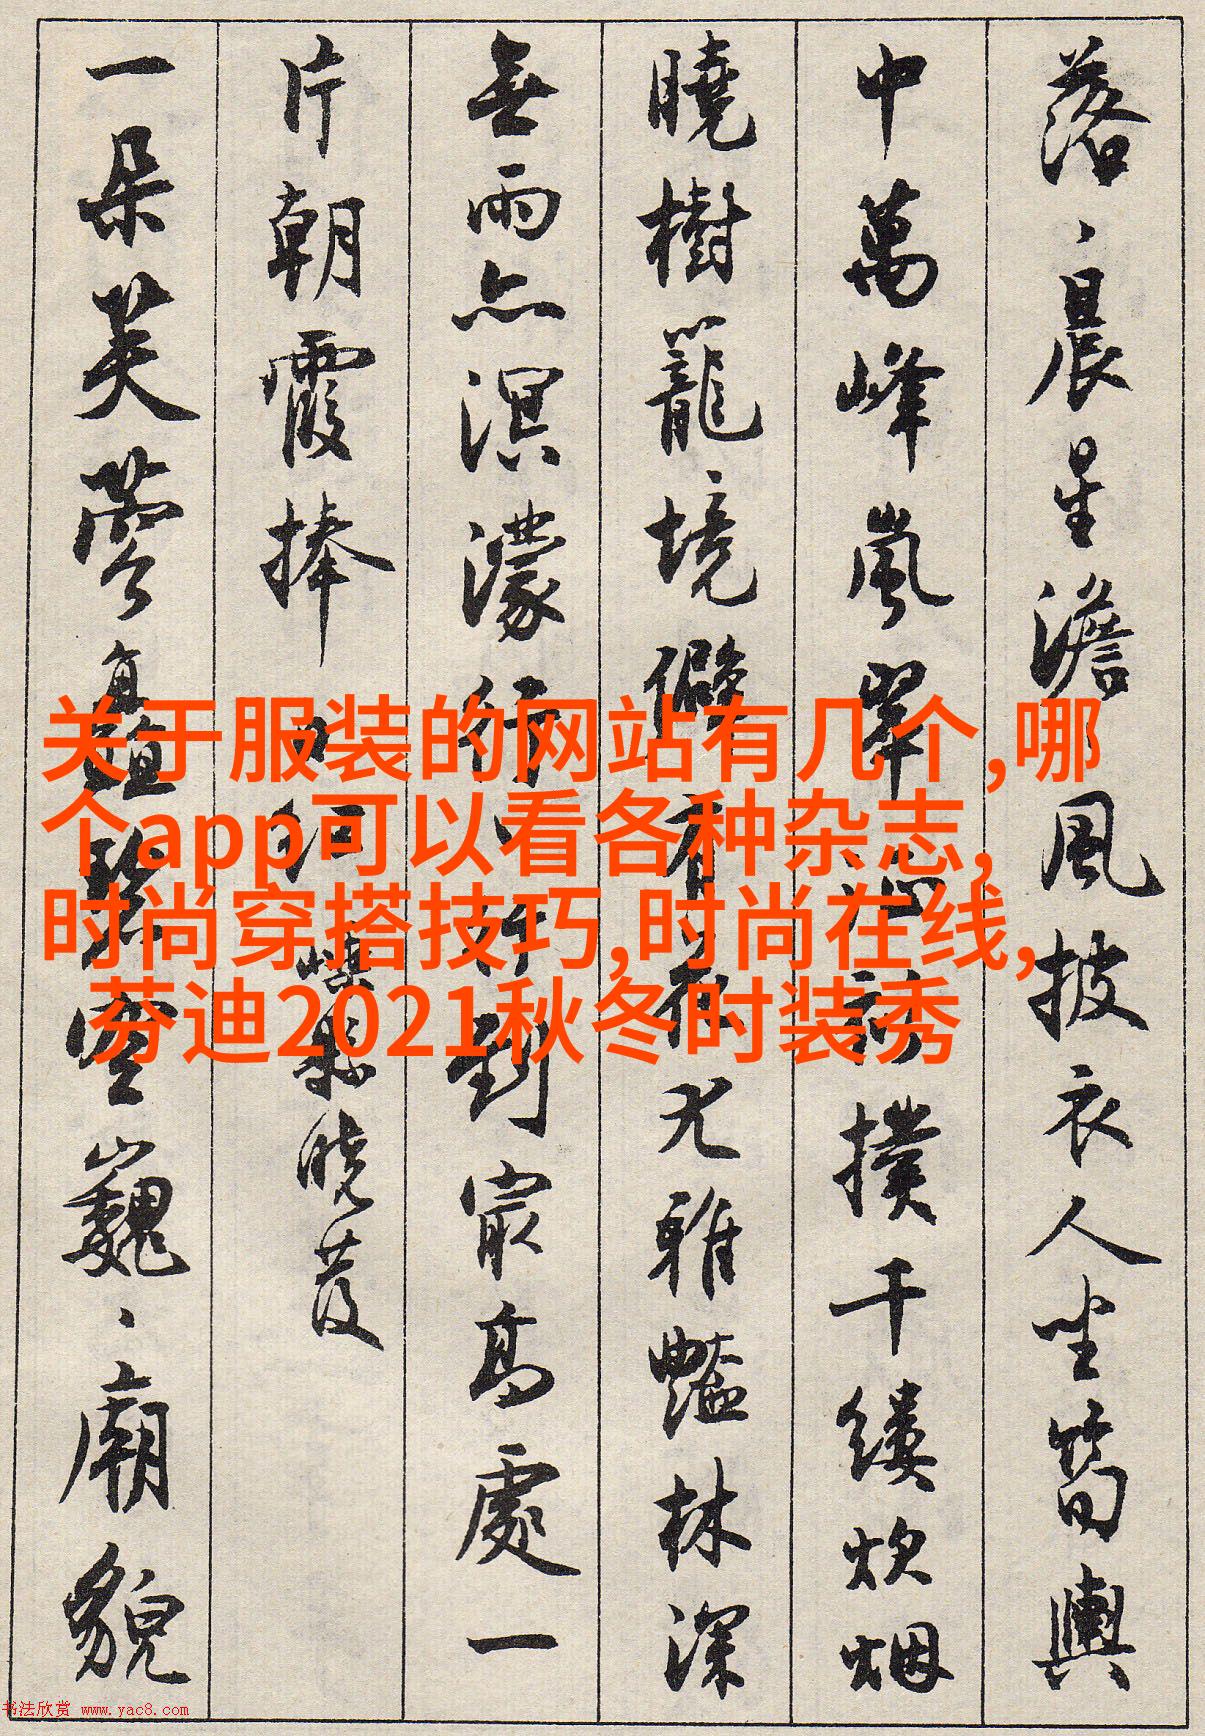 落、晨星澹風披衣人坐筍輿
中萬峰嵐翠 撲千縷炊烟
曉樹籠境僻 有 尤雅豔林深
無雨亦溟濛行 到最高處一
片朝霞捧 縣曉發
一朵芙蓉 空巍、廟貌
关于服装的网站有几个,哪
个app可以看各种杂志,
时尚穿搭技巧,时尚在线,
芬迪2021秋冬时装秀
书法欣赏 www.yac8.com